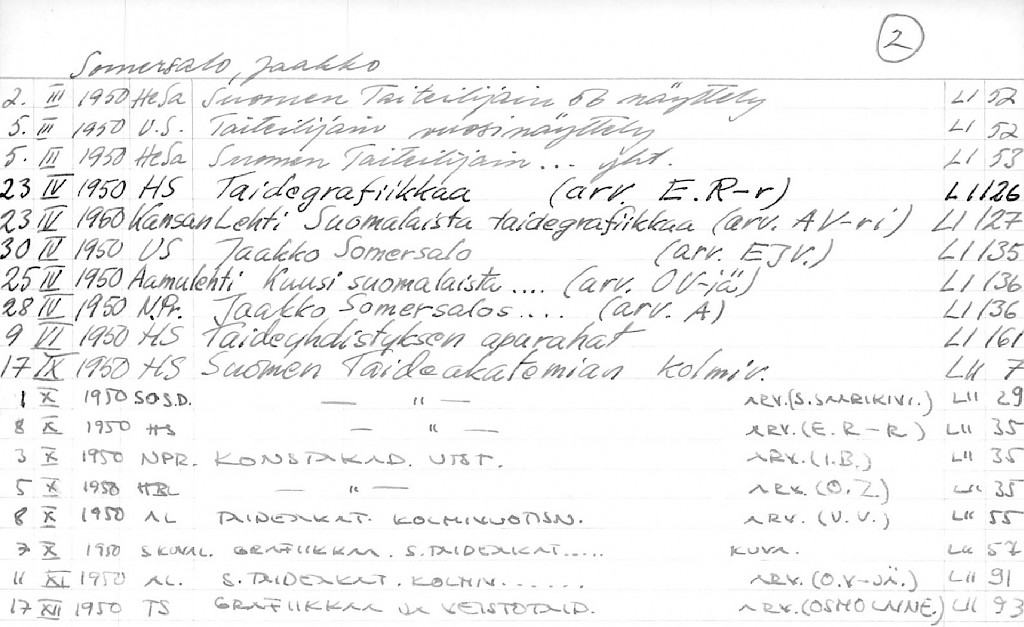 2
Somersalo, Jaakko
2. III 1950 HeSa Suomen Taiteilijain 56 näyttely LI 52
5. III 1950 U.S. Taiteilijain vuosinäyttely LI 52
5. III 1950 HeSa Suomen Taiteilijain... yht. LI 53
23 IV 1950 HS Taidegrafiikkaa (arv. E.R-r) LI 126
23 IV 1950 Kansan Lehti Suomalaista taidegrafiikkaa (arv. AV-ri) LI 127
30 IV 1950 US Jaakko Somersalo (arv. EJV.) LI 135
25 IV 1950 Aamulehti Kuusi suomalaista.... (arv. OV-jä) LI 136
28 IV 1950 N.Pr. Jaakko Somersalos.... (arv. A) LI 136
9 VI 1950 HS Taideyhdistyksen apurahat LI 161
17 IX 1950 HS Suomen Taideakatemian kolmiv. LII 7
1 X 1950 SOS.D. — " — ARV.(S.SAARIKIVI.) LII 29
8 X 1950 HS — " — ARV.(E.R-R.) LII 35
3 X 1950 NPR. KONSTAKAD. UTST. ARV.(I.B.) LII 35
5 X 1950 HBL — " — ARV.(O.Z.) LII 35
8 X 1950 AL TAIDEAKAT. KOLMIVUOTISN. ARV.(V.V.) LII 55
7 X 1950 SKUVAL. GRAFIIKKAA. S.TAIDEAKAT..... KUVA. LII 57
11 XI 1950 AL. S.TAIDEAKAT. KOLMIV....... ARV.(O.V-JÄ.) LII 91
17 XII 1950 TS GRAFIIKKAA JA VEISTOTAID. ARV.(OSMO LAINE.) LII 93